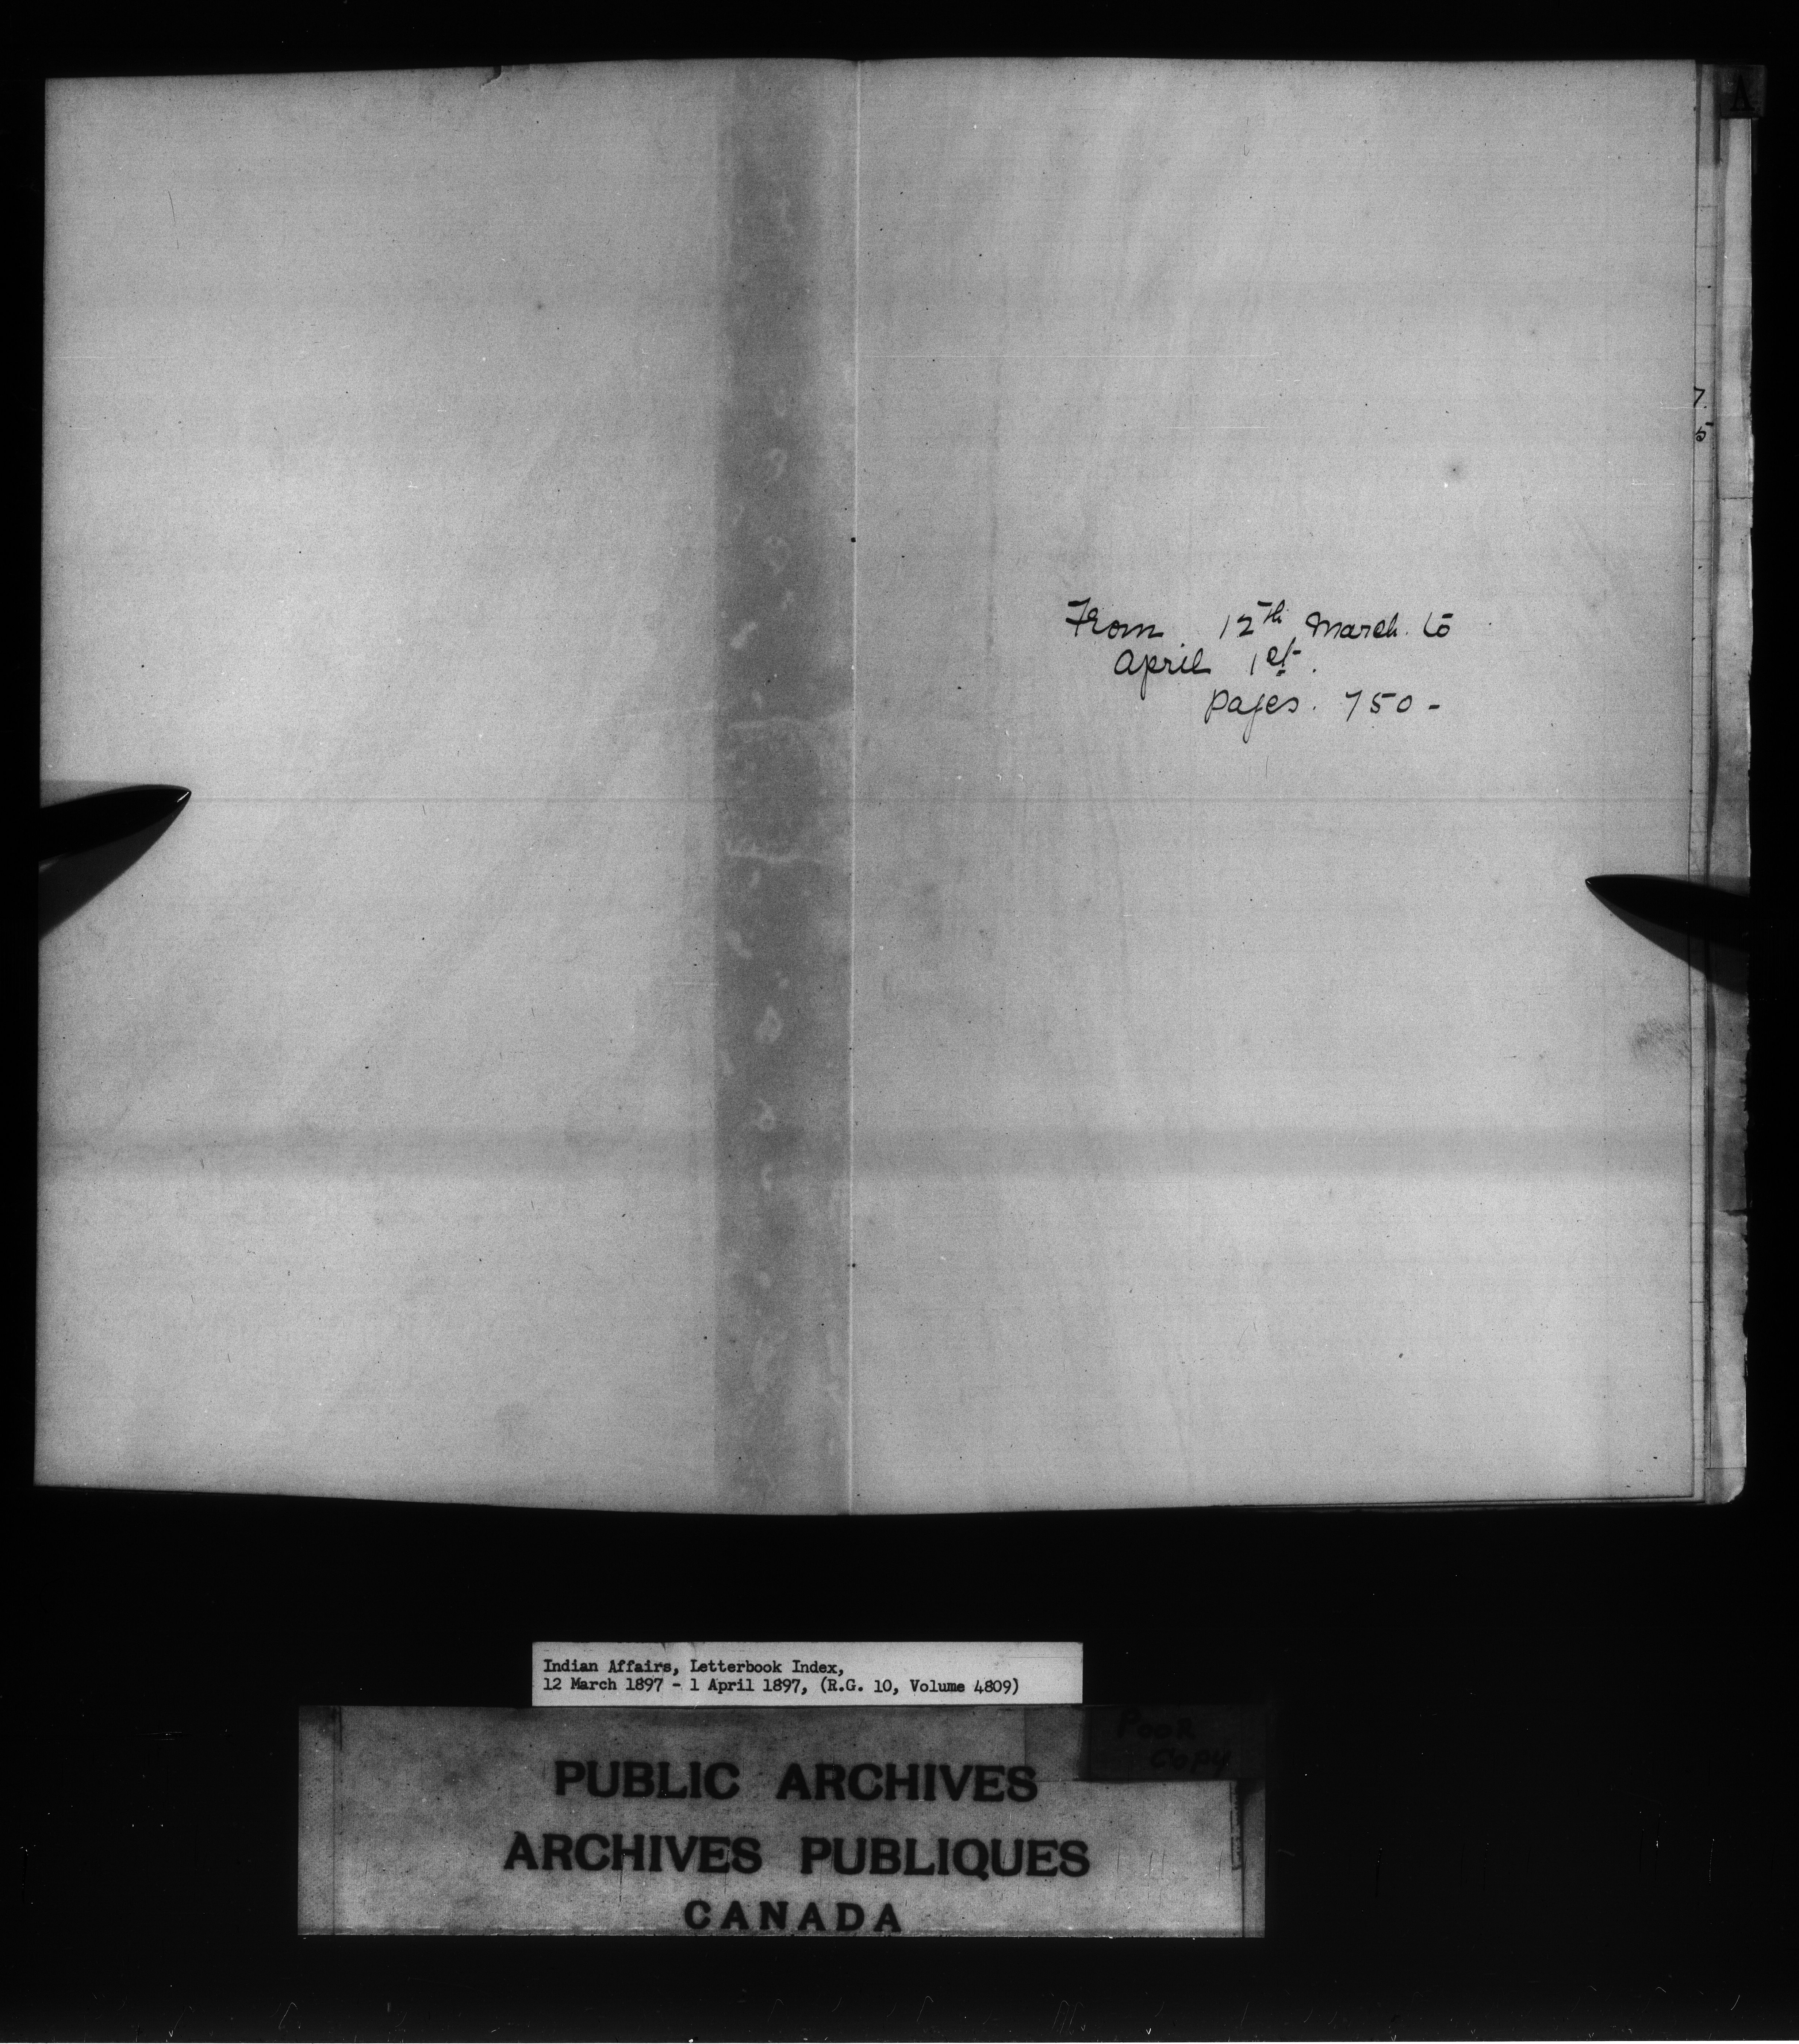 A
7.
5
From 12th March. to
April 1st.
pages. 750-
Indian Affairs, Letterbook Index,
12 March 1897 - 1 April 1897, (R.G. 10, Volume 4809)
POOR
COPY
PUBLIC ARCHIVES
ARCHIVES PUBLIQUES
CANADA